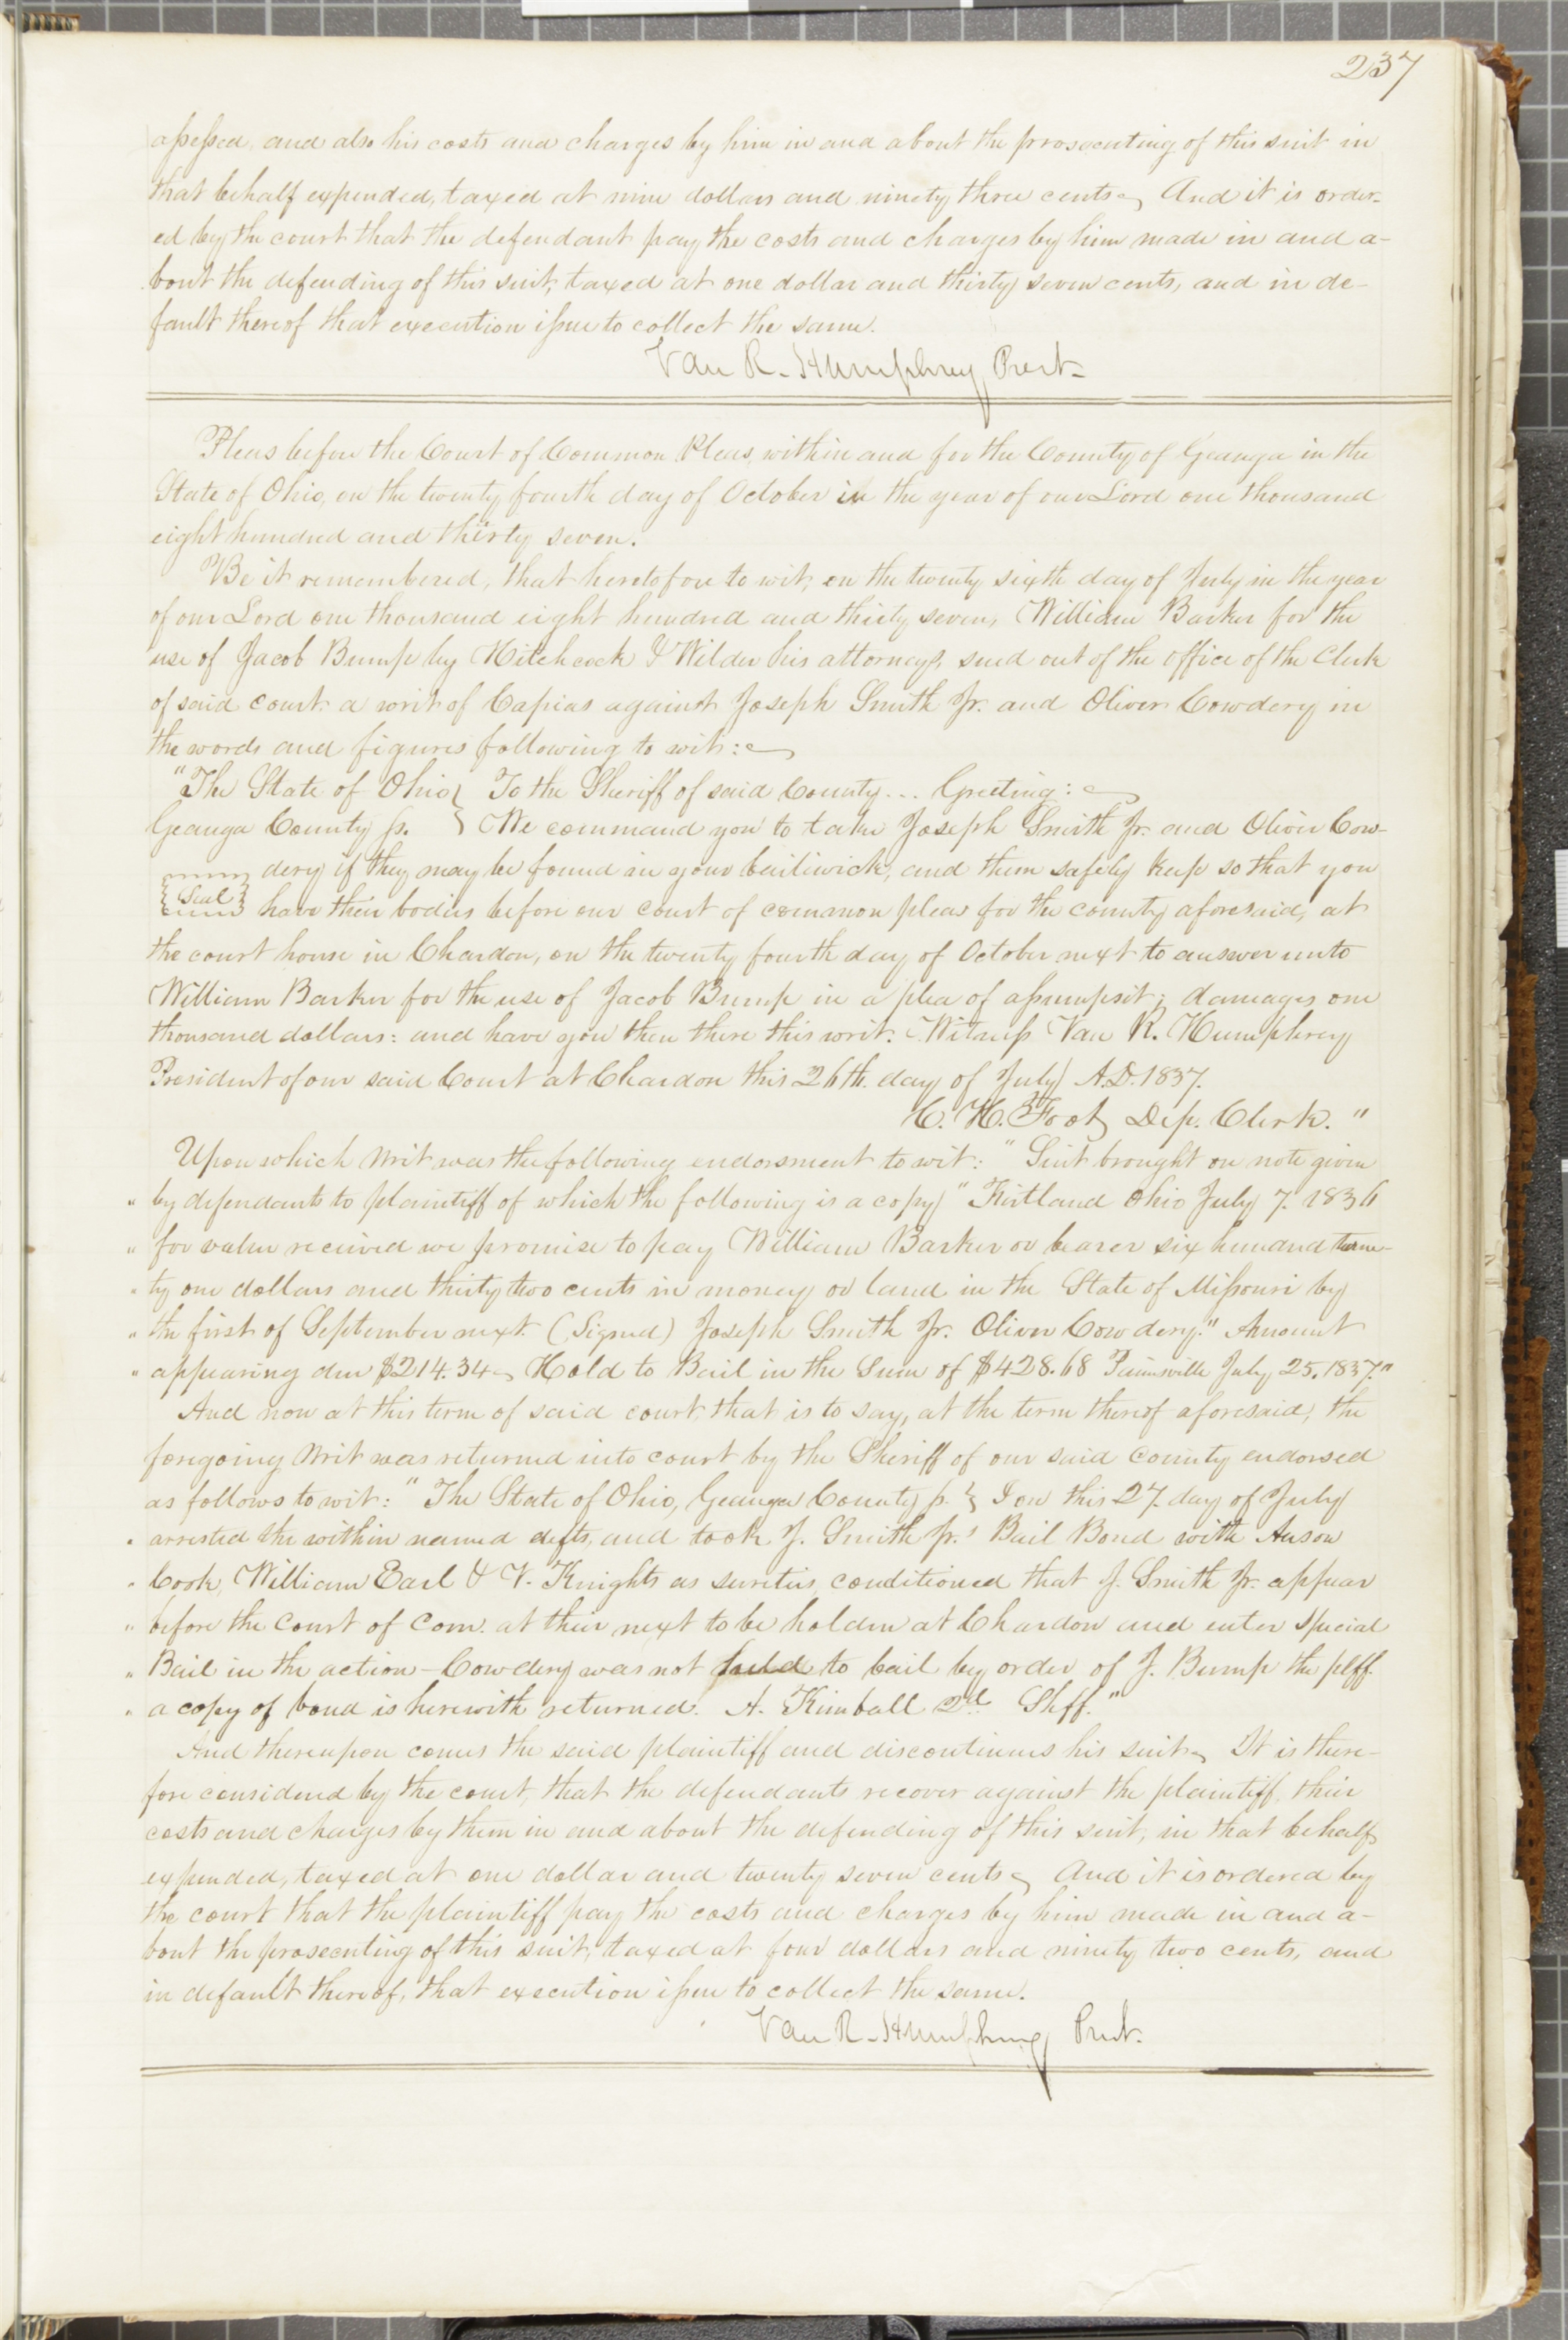 237
assessed, and also his costs and charges by him in and about the prosecuting of this suit in
that behalf expended, taxed at nine dollars and ninety three cents. And it is order-
ed by the court that the defendant pay the costs and charges by him made in and a-
bout the defending of this suit, taxed at one dollar and thirty seven cents, and in de-
fault thereof that execution issue to collect the same.
Van R. Humphrey Prest.
Pleas before the Court of Common Pleas, within and for the County of Geauga in the
State of Ohio, on the twenty fourth day of October in the year of our Lord one thousand
eight hundred and thirty seven.
Be it remembered, that heretofore to wit, on the twenty sixth day of July in the year
of our Lord one thousand eight hundred and thirty seven, William Barker for the
use of Jacob Bump by Hitchcock & Wilder his attorneys, sued out of the office of the Clerk
of said court a writ of Capias against Joseph Smith Jr. and Oliver Cowdery in
the words and figures following to wit:
"The State of Ohio } To the Sheriff of said County... Greeting:
Geauga County ss. } We command you to take Joseph Smith Jr. and Oliver Cow-
dery if they may be found in your bailiwick, and them safely keep so that you
{Seal} have their bodies before our court of common pleas for the county aforesaid, at
the court house in Chardon, on the twenty fourth day of October next to answer unto
William Barker for the use of Jacob Bump in a plea of assumpsit; damages one
thousand dollars: and have you then there this writ. Witness Van R. Humphrey
President of our said Court at Chardon this 26th. day of July A.D. 1837.
C. H. Foot Dep. Clerk."
Upon which writ was the following endorsment to wit: "Suit brought on note given
" by defendants to plaintiff of which the following is a copy "Kirtland Ohio July 7. 1836
" for value received we promise to pay William Barker or bearer six hundred twen-
" ty one dollars and thirty two cents in money or land in the State of Missouri by
" the first of September next. (Signed) Joseph Smith Jr. Oliver Cowdery." Amount
" appearing due $214.34 Hold to Bail in the Sum of $428.68 Painsville July 25, 1837."
And now at this term of said court, that is to say, at the term thereof aforesaid, the
foregoing writ was returned into court by the Sheriff of our said county endorsed
as follows to wit: "The State of Ohio, Geauga County ss. } I on this 27. day of July
" arrested the within named defts, and took J. Smith Jr.s Bail Bond with Anson
" Cook, William Earl & V. Knights as sureties, conditioned that J. Smith Jr. appear
" before the Court of Com. at their next to be holden at Chardon and enter special
" Bail in the action - Cowdery was not held to bail by order of J. Bump the plff.
" a copy of bond is herewith returned. A. Kimball 2d. Shff."
And thereupon comes the said plaintiff and discontinues his suit. It is there-
fore considered by the court, that the defendants recover against the plaintiff, their
costs and charges by them in and about the defending of this suit, in that behalf
expended, taxed at one dollar and twenty seven cents. And it is ordered by
the court that the plaintiff pay the costs and charges by him made in and a-
bout the prosecuting of this suit, taxed at four dollars and ninety two cents, and
in default thereof, that execution issue to collect the same.
Van R. Humphrey Prest.